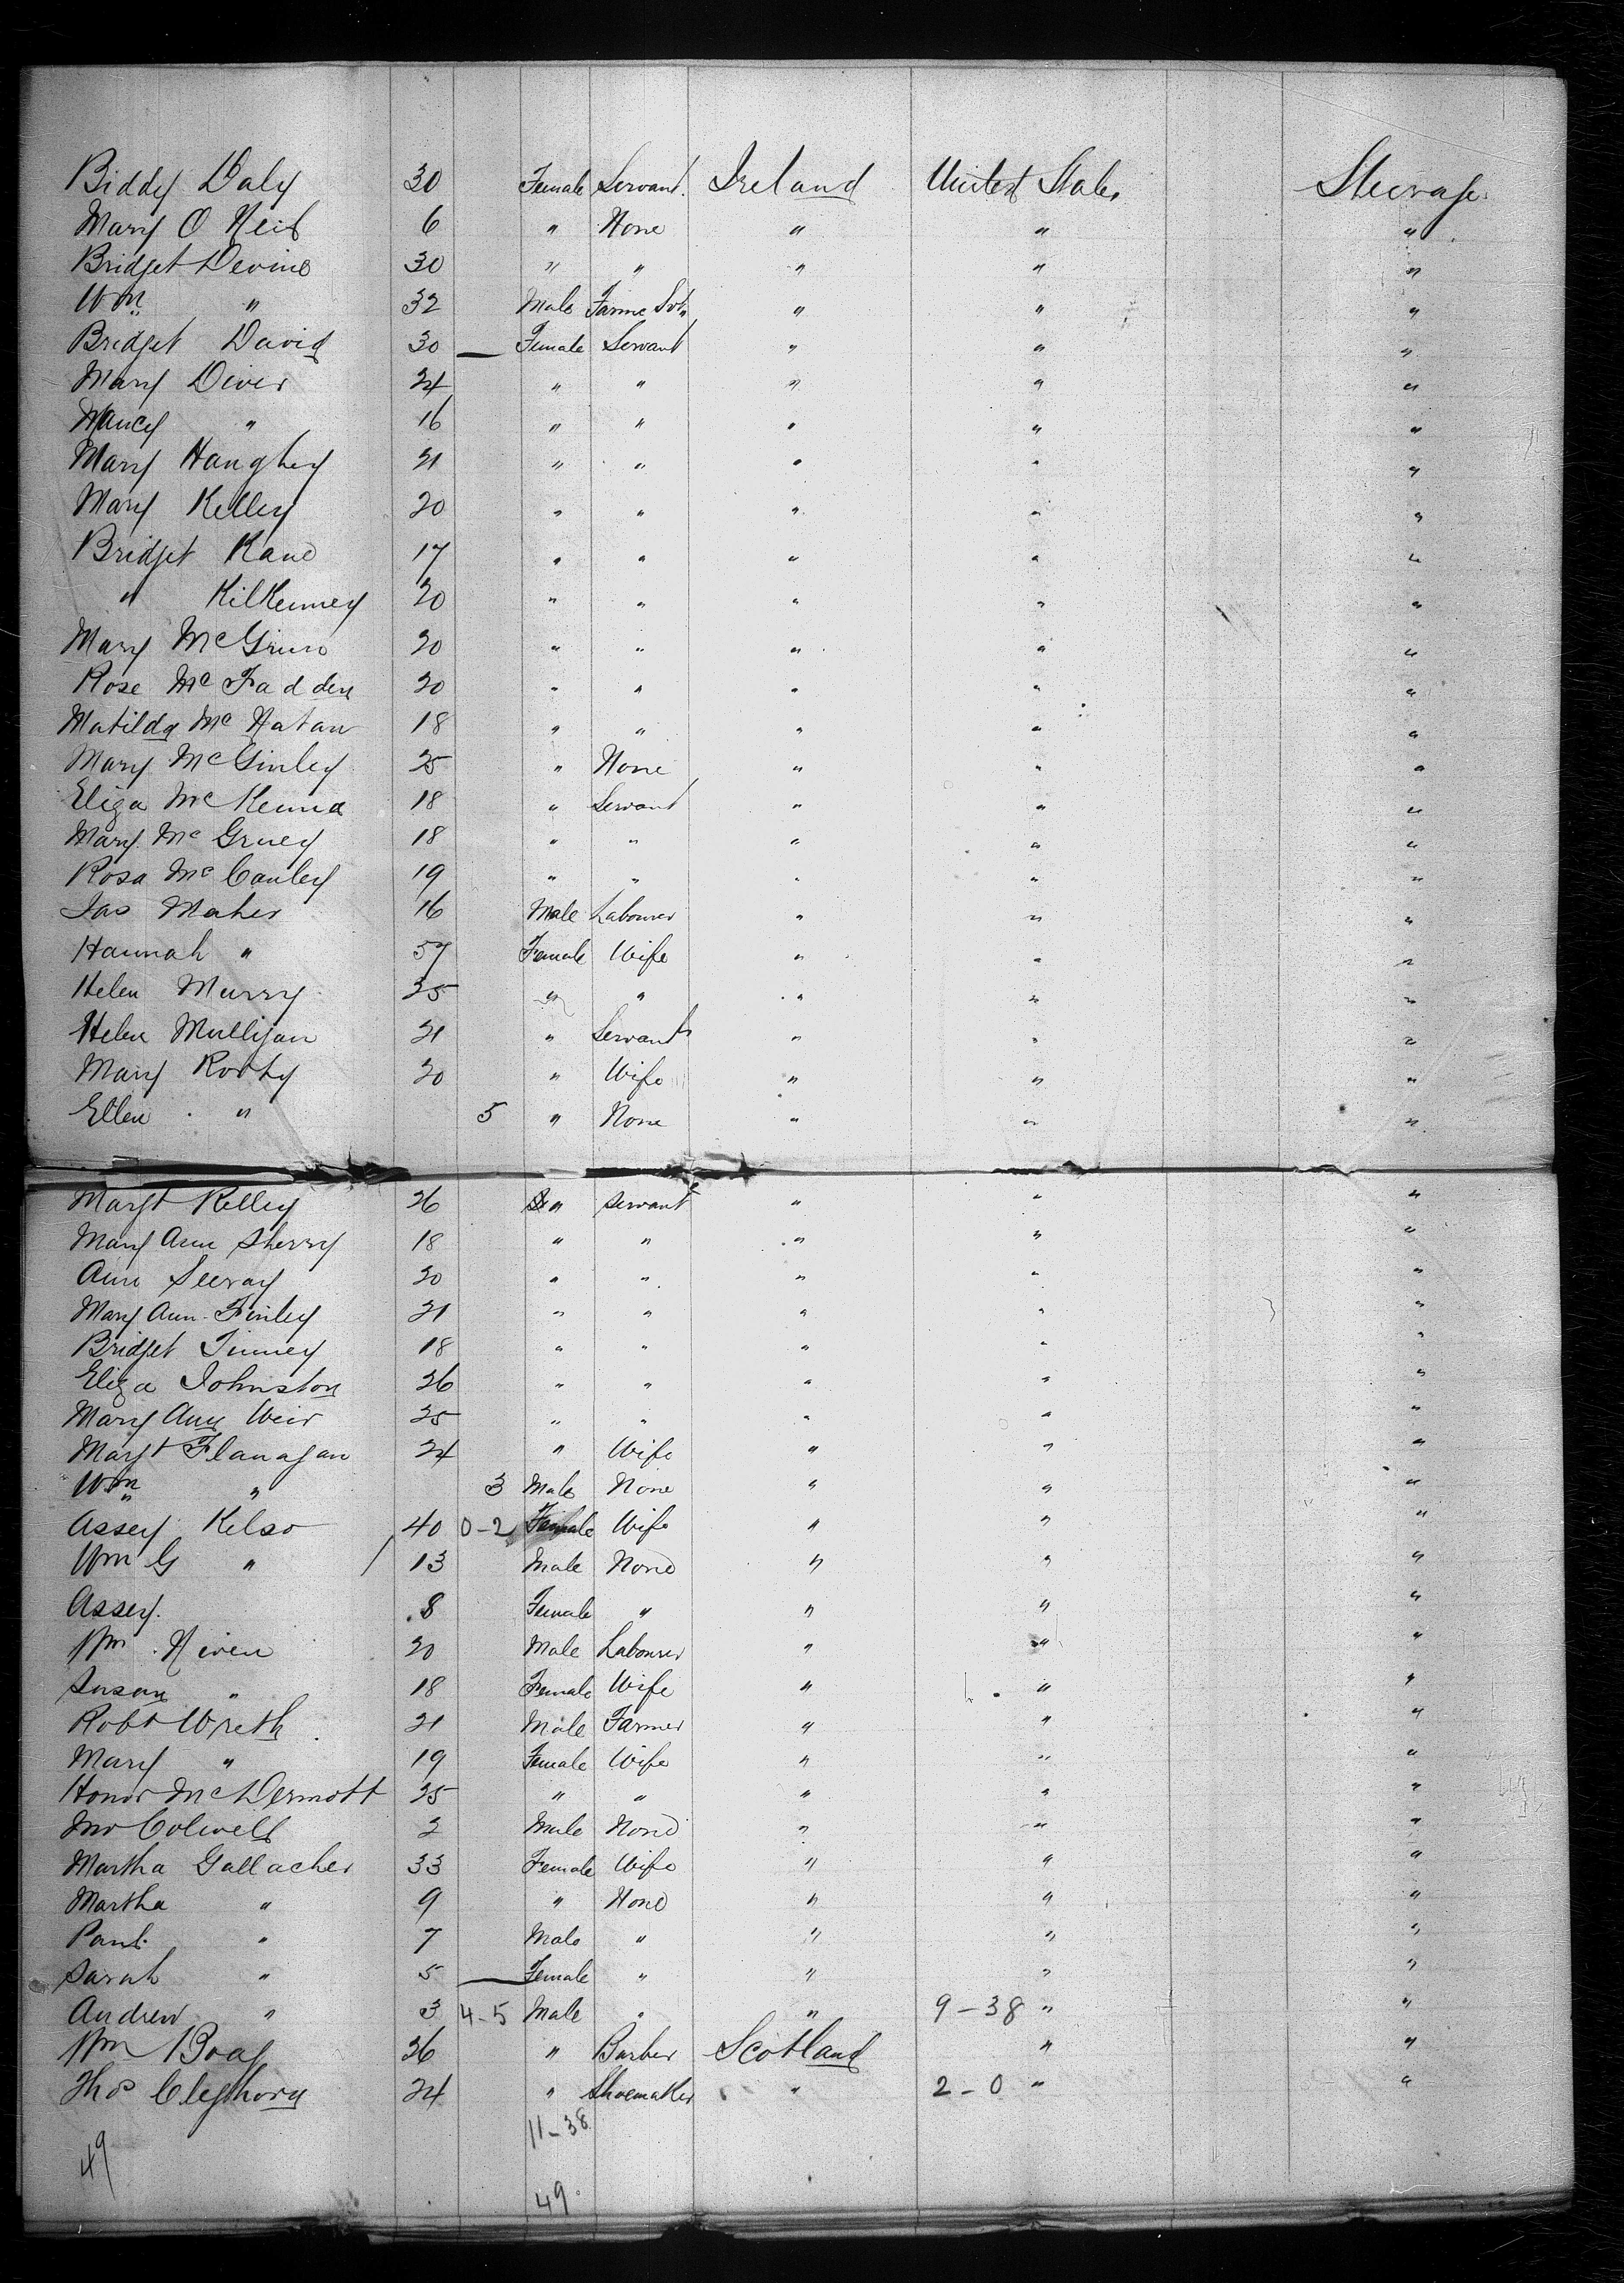 Biddy Daly 30 Female Servant. Ireland United States Steerage
Mary O Neil 6 " None " " "
Bridget Devine 30 " " " " "
Wm " 32 Male Farme Svt " " "
Bridget David 30 — Female Servant " " "
Mary Diver 24 " " " " "
Nancy " 16 " " " " "
Mary Haughey 21 " " " " "
Mary Kelley 20 " " " " "
Bridget Kane 17 " " " " "
" Kilkenney 20 " " " " "
Mary 20 " " " " "
Rose McFadden 20 " " " " "
Matilda Mc Natan 18 " " " " "
Mary McGinley 25 " None " " "
Eliza McKenna 18 " Servant " " "
Mary Mc Gruey 18 " " " " "
Rosa McCauley 19 " " " " "
Jas Maher 16 Male Labourer " " "
Hannah " 57 Female Wife " " "
Helen Murry 35 " " " " "
Helen Mulligan 21 " Servant " " "
Mary 20 " Wife " " "
Ellen " 5 " None " " "
Margt Kelley 26 " Servant " " "
Mary Ann Sherry 18 " " " " "
Ann 20 " " " " "
Mary Ann Finley 21 " " " " "
Bridget Tinney 18 " " " " "
Eliza Johnston 26 " " " " "
Mary Ann Weir 25 " " " " "
Margt Flanagan 24 " Wife " " "
Wm " 3 Male None " " "
Assey Kelso 40 0-2 Female Wife " " "
Wm G " 13 Male None " " "
Assey. 8 Female " " " "
Wm Niven 20 Male Labourer " " "
Susan " 18 Female Wife " " "
Robt Wreth 21 Male Farmer " " "
Mary " 19 Female Wife " " "
Honor McDermott 25 " " " " "
Jno Colwell 2 Male None " " "
Martha Gallacher 33 Female Wife " " "
Martha " 9 " None " " "
Paul " 7 Male " " " "
Sarah " 5 — Female " " " "
Andrew " 3 4-5 Male " " 9-38 " "
Wm Boag 36 " Barber Scotland " "
Thos Cleghorn 24 " Shoemaker " 2-0 " "
11-38
49
49